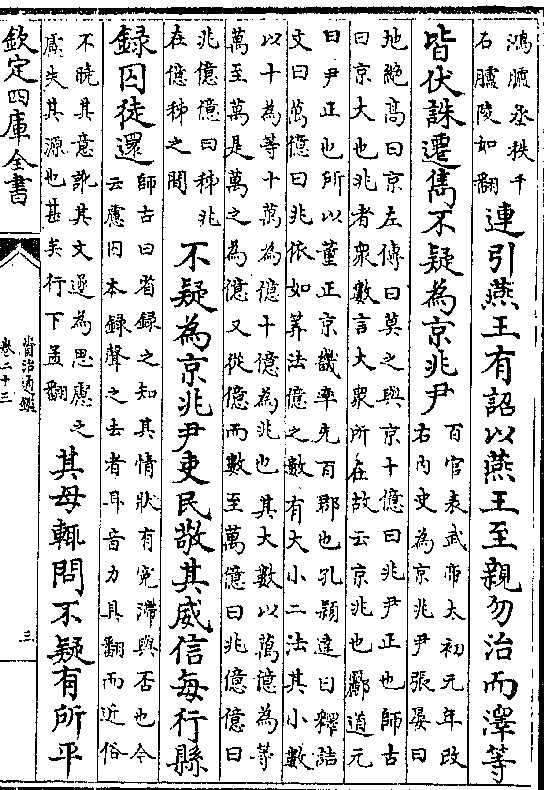 鴻臚丞秩千
石臚陵如翻
連引燕王有詔以燕王至親勿治而澤等
皆伏誅遷儁不疑為京兆尹
百官表武帝太初元年改
右內史為京兆尹張晏曰
地絶高曰京左傳曰莫之與京十億曰兆尹正也師古
曰京大也兆者衆數言大衆所在故云京兆也酈道元
曰尹正也所以董正京畿率先百郡也孔穎達曰釋詁
文曰萬億曰兆依如筭法億之數有大小二法其小數
以十為等十萬為億十億為兆也其大數以萬億為等
萬至萬是萬之為億又從億而數至萬億曰兆億億曰
兆億億曰秭兆
在億秭之間
不疑為京兆尹吏民敬其威信每行縣
録囚徒還
師古曰省録之知其情狀有寃滯與否也今
云慮囚本録聲之去者耳音力具翻而近俗
不曉其意訛其文遂為思慮之
慮失其源也甚矣行下孟翻
其母輒問不疑有所平
欽定四庫全書
資治通鑑
卷二十三
三